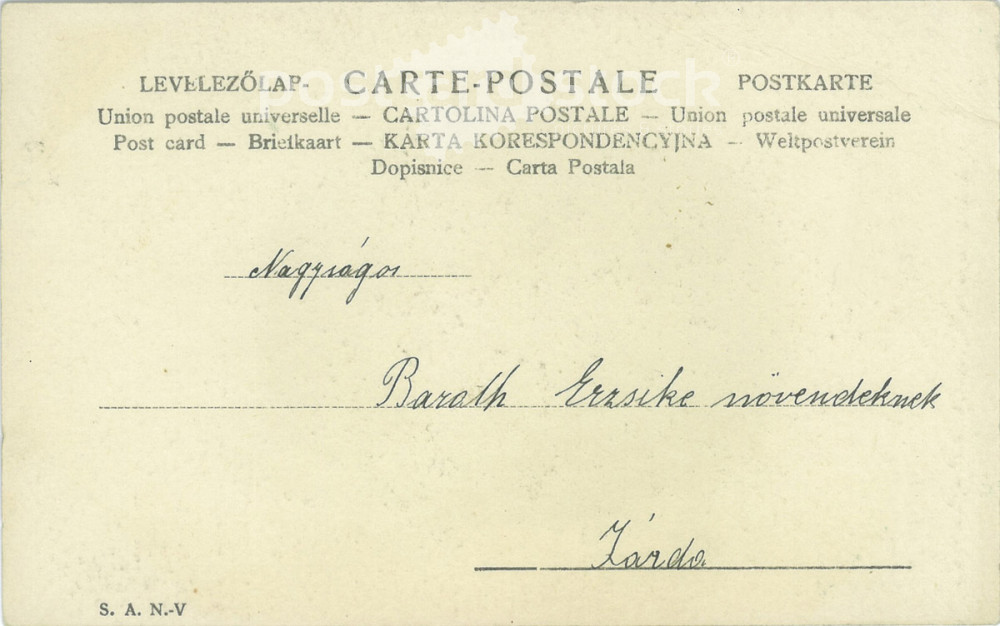 LEVELEZŐLAP- CARTE-POSTALE POSTKARTE
Union postale universelle — CARTOLINA POSTALE — Union postale universale
Post card — Briefkaart — KARTA KORESPONDENCYJNA — Weltpostverein
Dopisnice — Carta Postala
Nagyságos
Barath Erzsike növendeknek
Zárda
S. A. N.-V